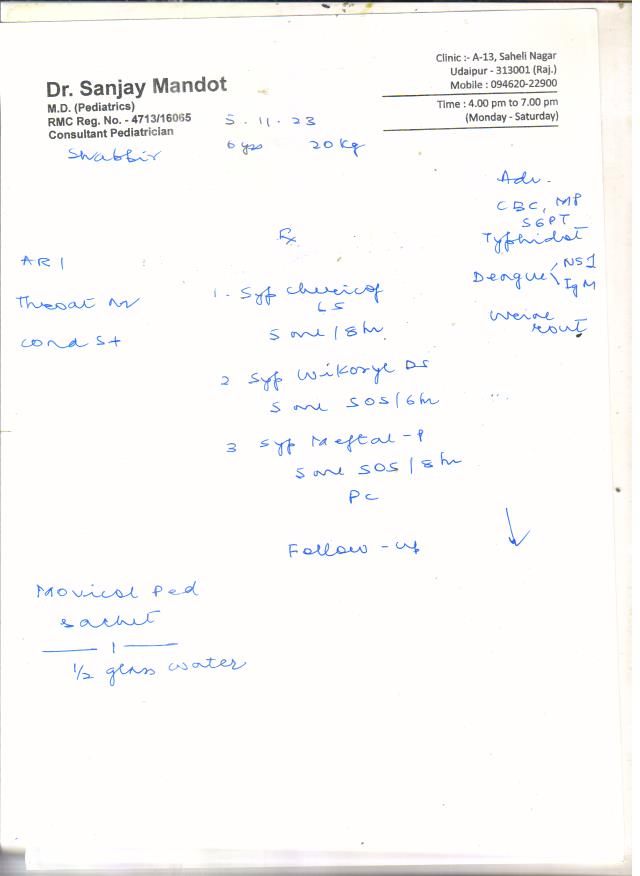 Dr. Sanjay Mandot
M.D. (Pediatrics)
RMC Reg. No. - 4713/16065
Consultant Pediatrician
Clinic :- A-13, Saheli Nagar
Udaipur - 313001 (Raj.)
Mobile : 094620-22900
Time : 4.00 pm to 7.00 pm
(Monday - Saturday)
5.11.23
Shabbir
6 yrs 20 kg
Adv.
CBC, MP
SGPT
Typhidot
Dengue NS1
IgM
Rx
ARI
Throat
1. Syp
LS
5 ml / 8 hr
2 Syp Wikoryl DS
5 ml SOS / 6 hr
3 Syp Meftal - P
5 ml SOS / 8 hr
PC
Follow - up
Movicol Ped
sachet
1
1/2 glass water